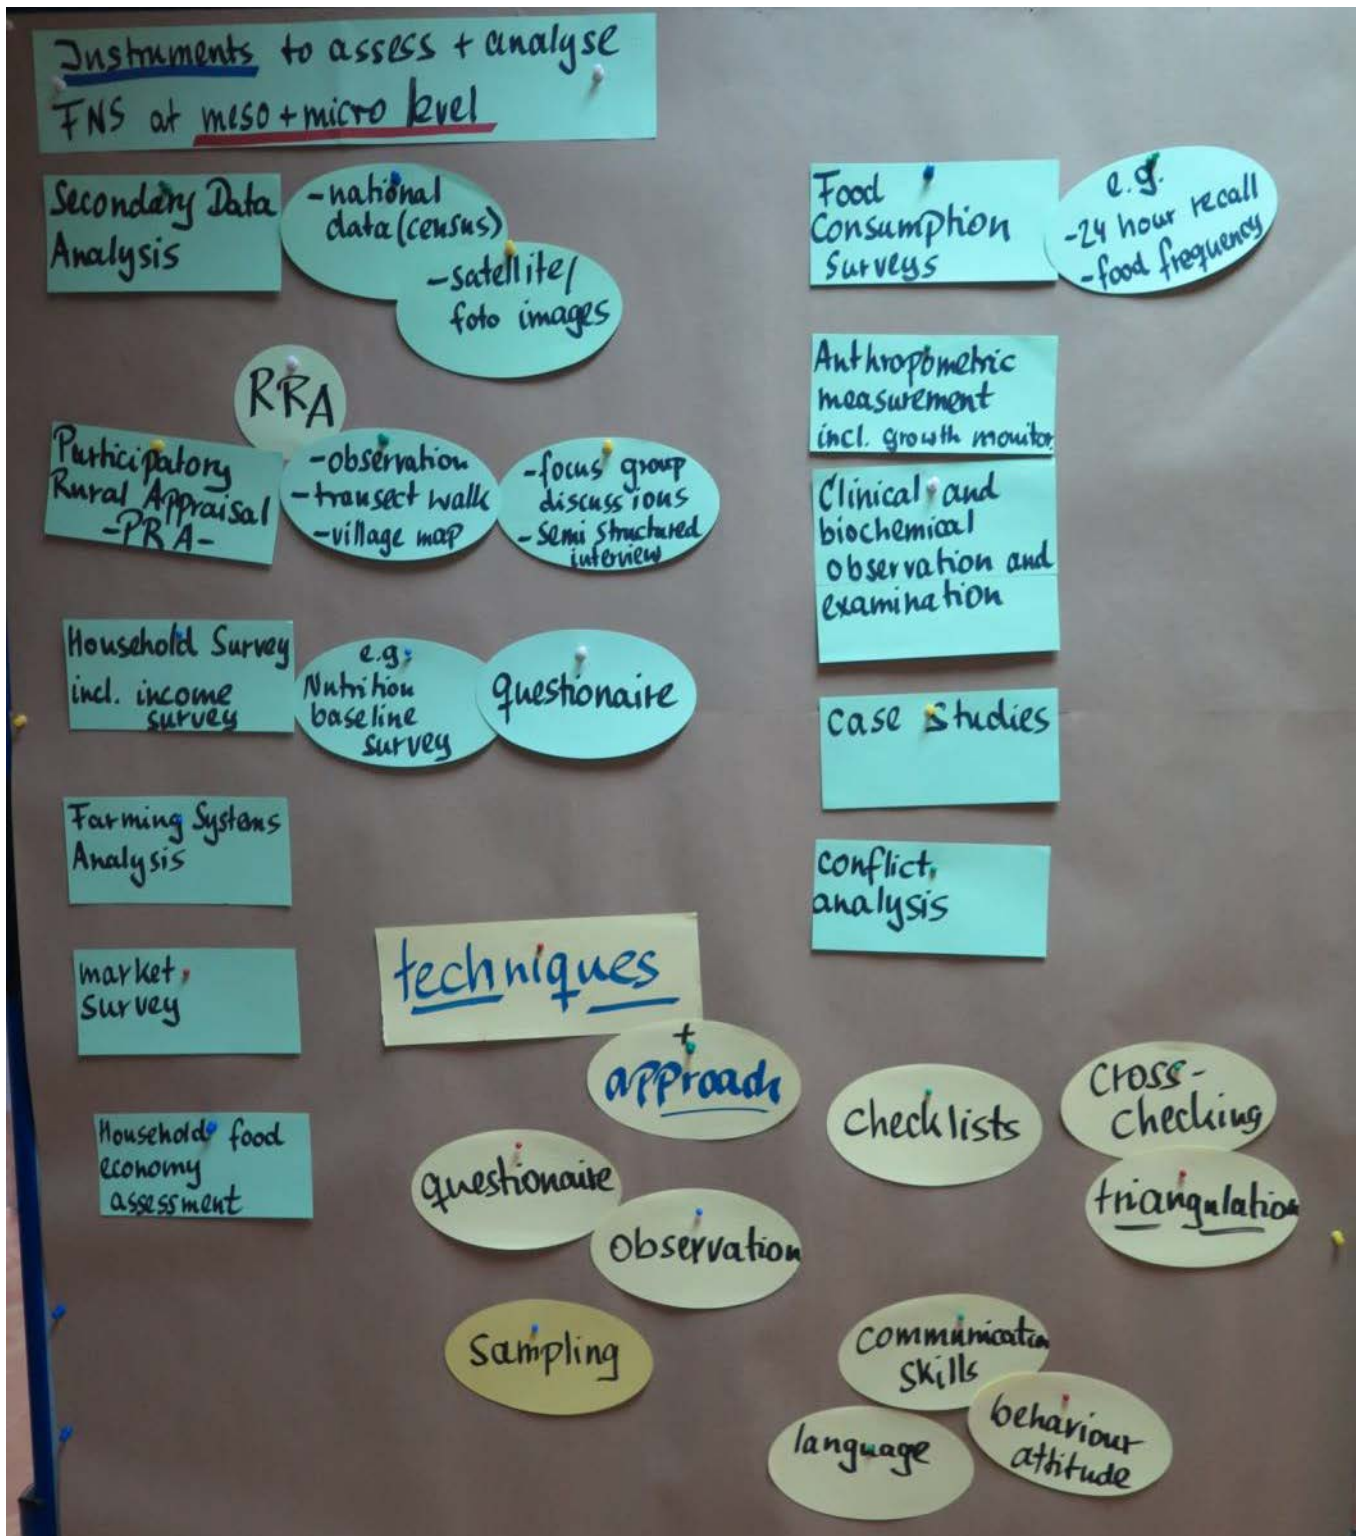 Instruments to assess + analyse
FNS at meso + micro level
Secondary Data
Analysis
- national
data (census)
- satellite/
foto images
RRA
Participatory
Rural Appraisal
- PRA -
- observation
- transect walk
- village map
- focus group
discussions
- semi structured
interview
Household Survey
incl. income
survey
e.g.
Nutrition
baseline
survey
questionaire
Farming Systems
Analysis
market
survey
Household food
economy
assessment
Food
Consumption
Surveys
e.g.
- 24 hour recall
- food frequency
Anthropometric
measurement
incl. growth monitor.
Clinical and
biochemical
observation and
examination
case studies
conflict
analysis
techniques
+
approach
questionaire
observation
sampling
checklists
cross-
checking
triangulation
communication
skills
behaviour
attitude
language